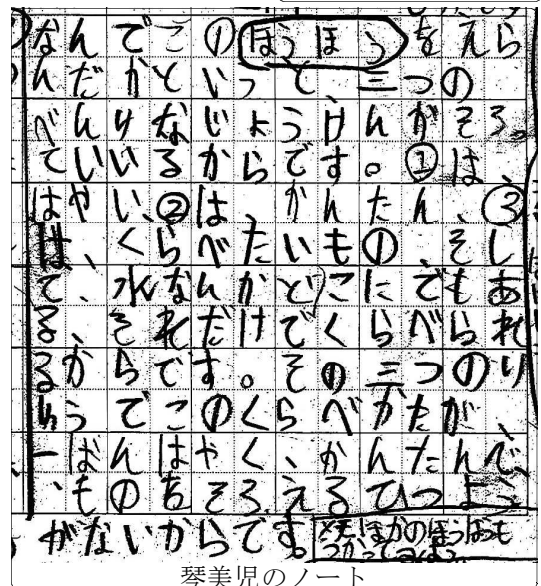 なんでこの ほうほう をえら
んだかといっと、三つの
べんりなじょうけんがそろっ
ていいるからです。①は、
はやい、②は、かんたん、③
は、くらべたいもの、そし
て、水なんかどこにでもあ
る、それだけでくらべられ
るからです。その三つのり
ゆうでこのくらべかたが、
一ばんはやく、かんたんで、
ものをそろえるひつよう
がないからです。
ほかのほうほうも
つかってみよう
琴美児のノート